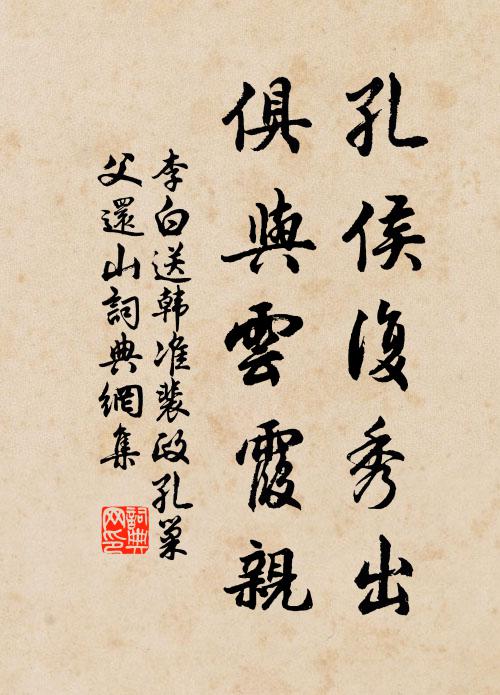 孔侯復秀出
俱與雲霞親
李白送韩准裴政孔巢
父還山詞典網集
詞典网印